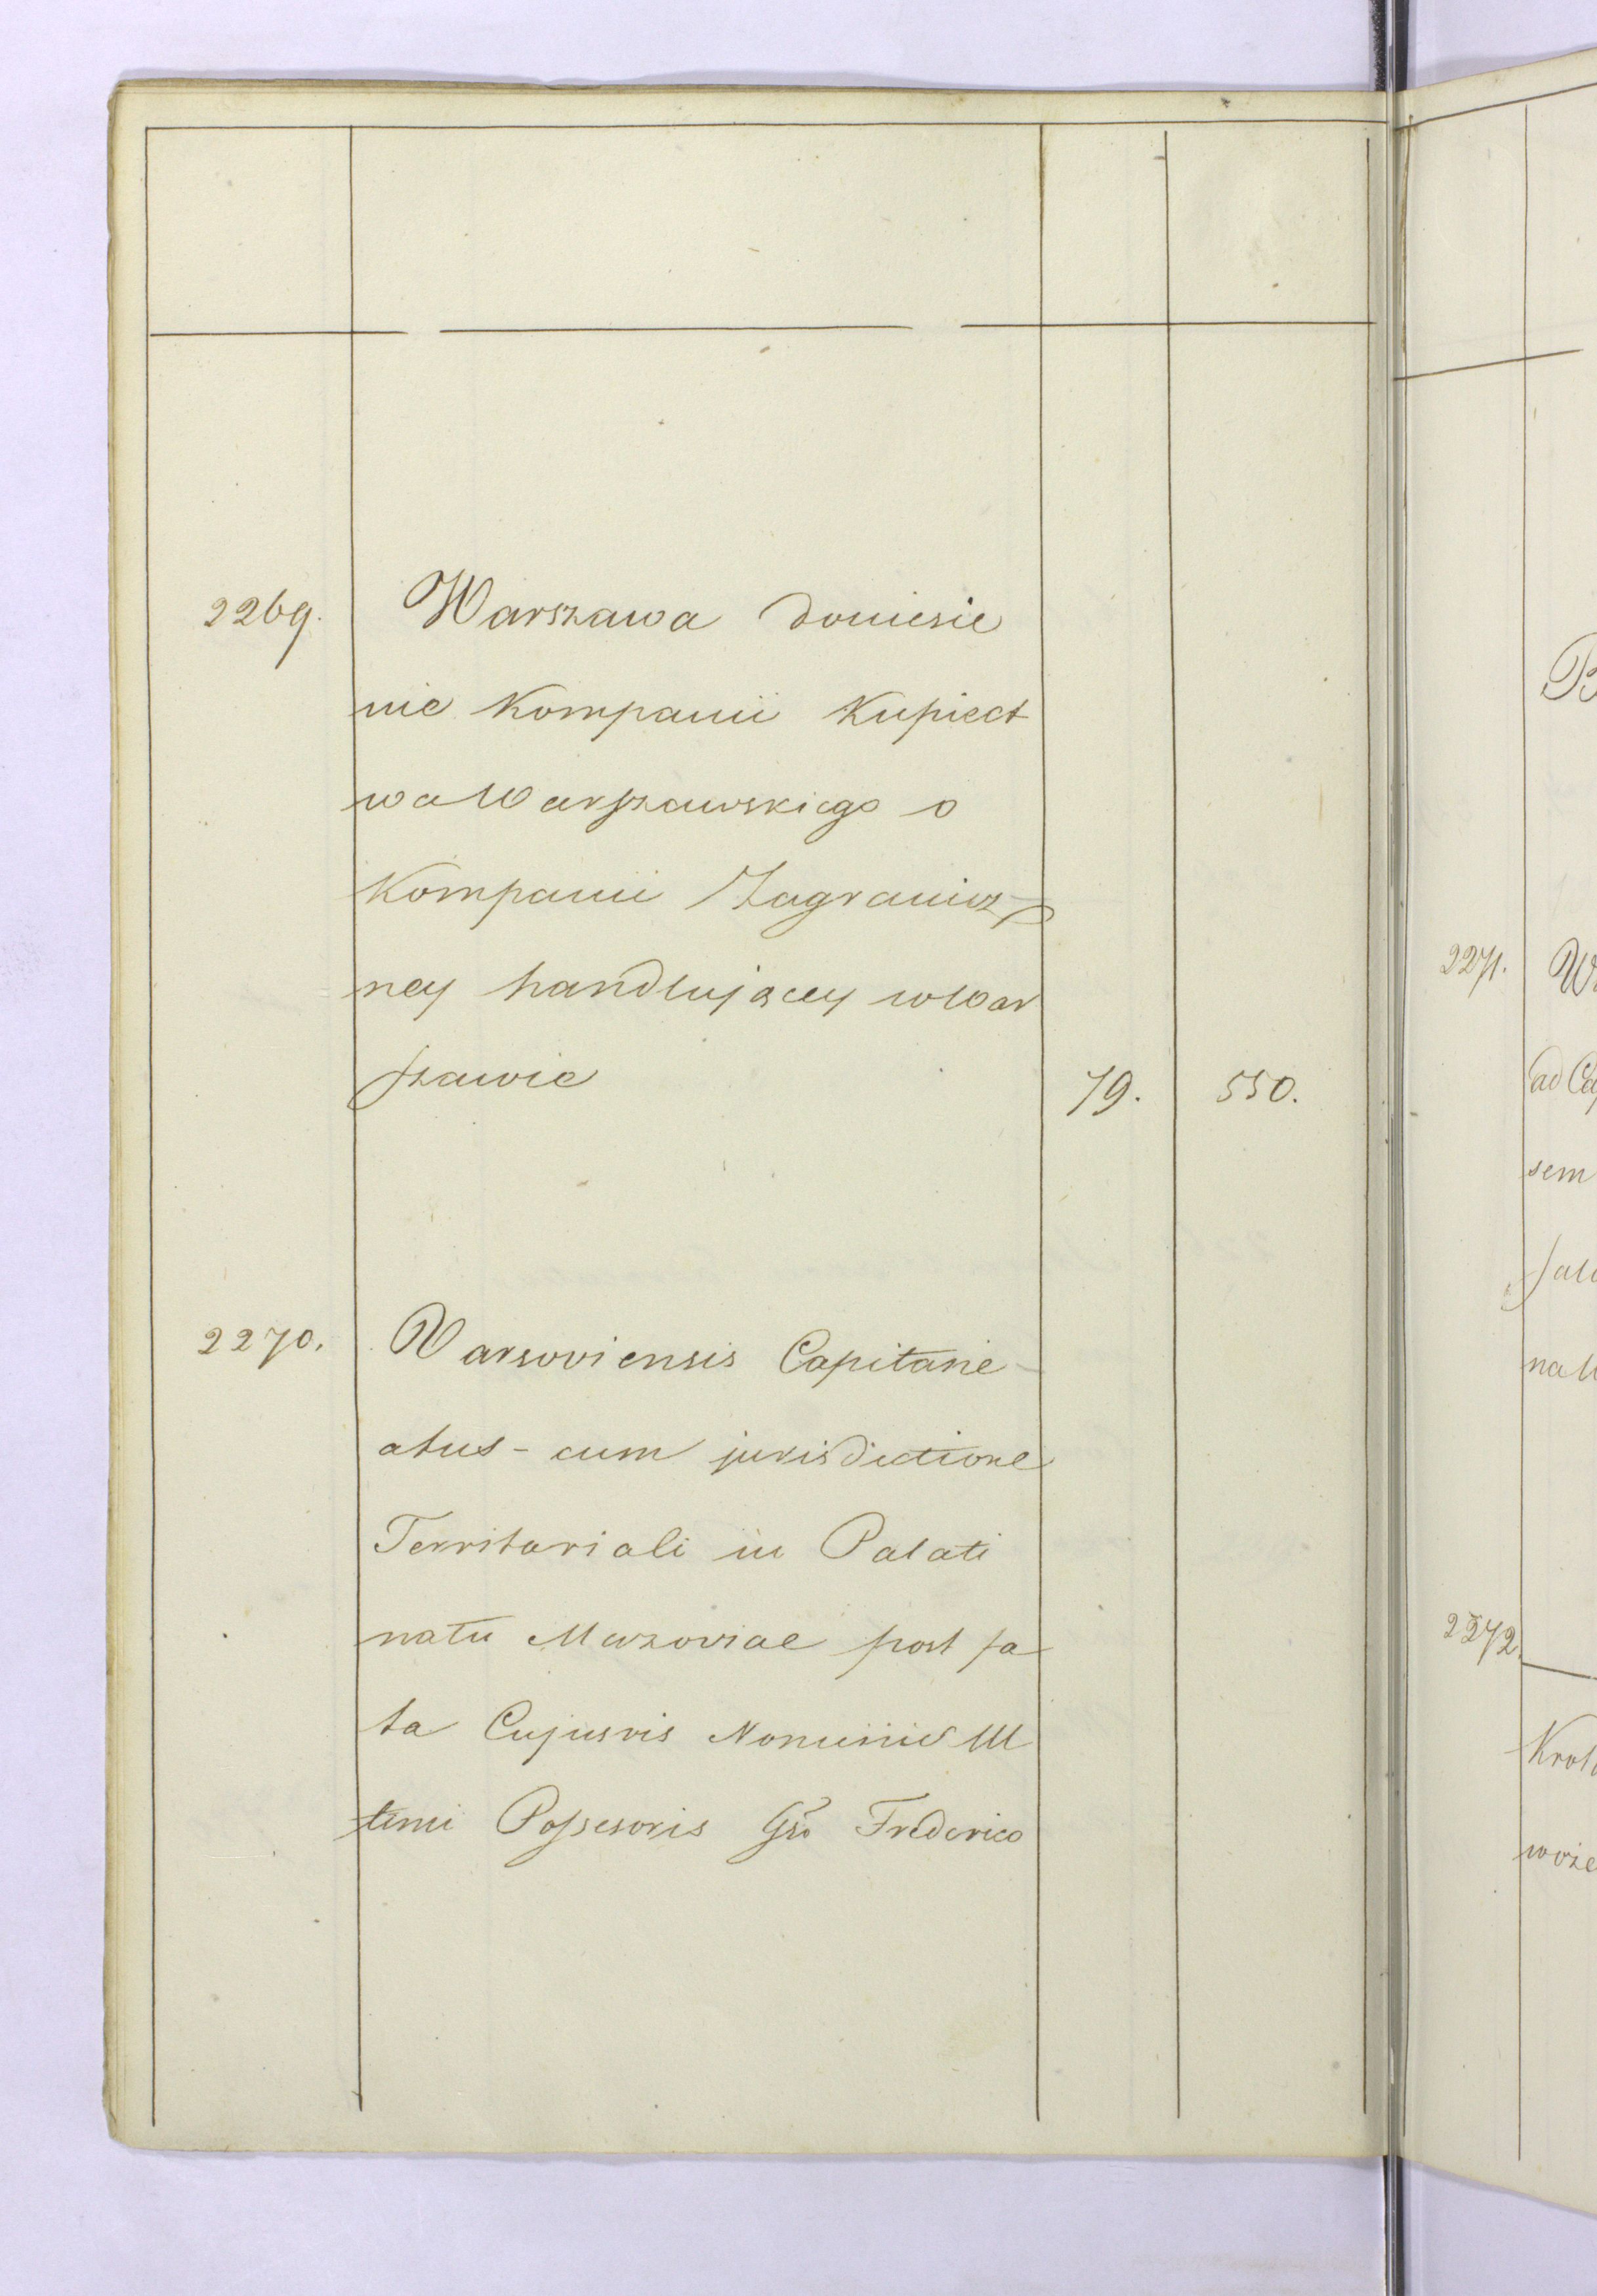 2269. Warszawa doniesie
nie Kompanii Kupiect
wa Warszawskiego o
Kompanii Zagranicz-
ney handlującey w War
szawie 79. 550.
2270. Varsoviensis Capitane-
atus - cum jurisdictione
Territoriali in Palati
natu Mazoviae post fa
ta Cujusvis Nominis Ul
timi Possesoris Gso Frederico
B
2271. W
ad Cap
sem
nal
2272.
Krol